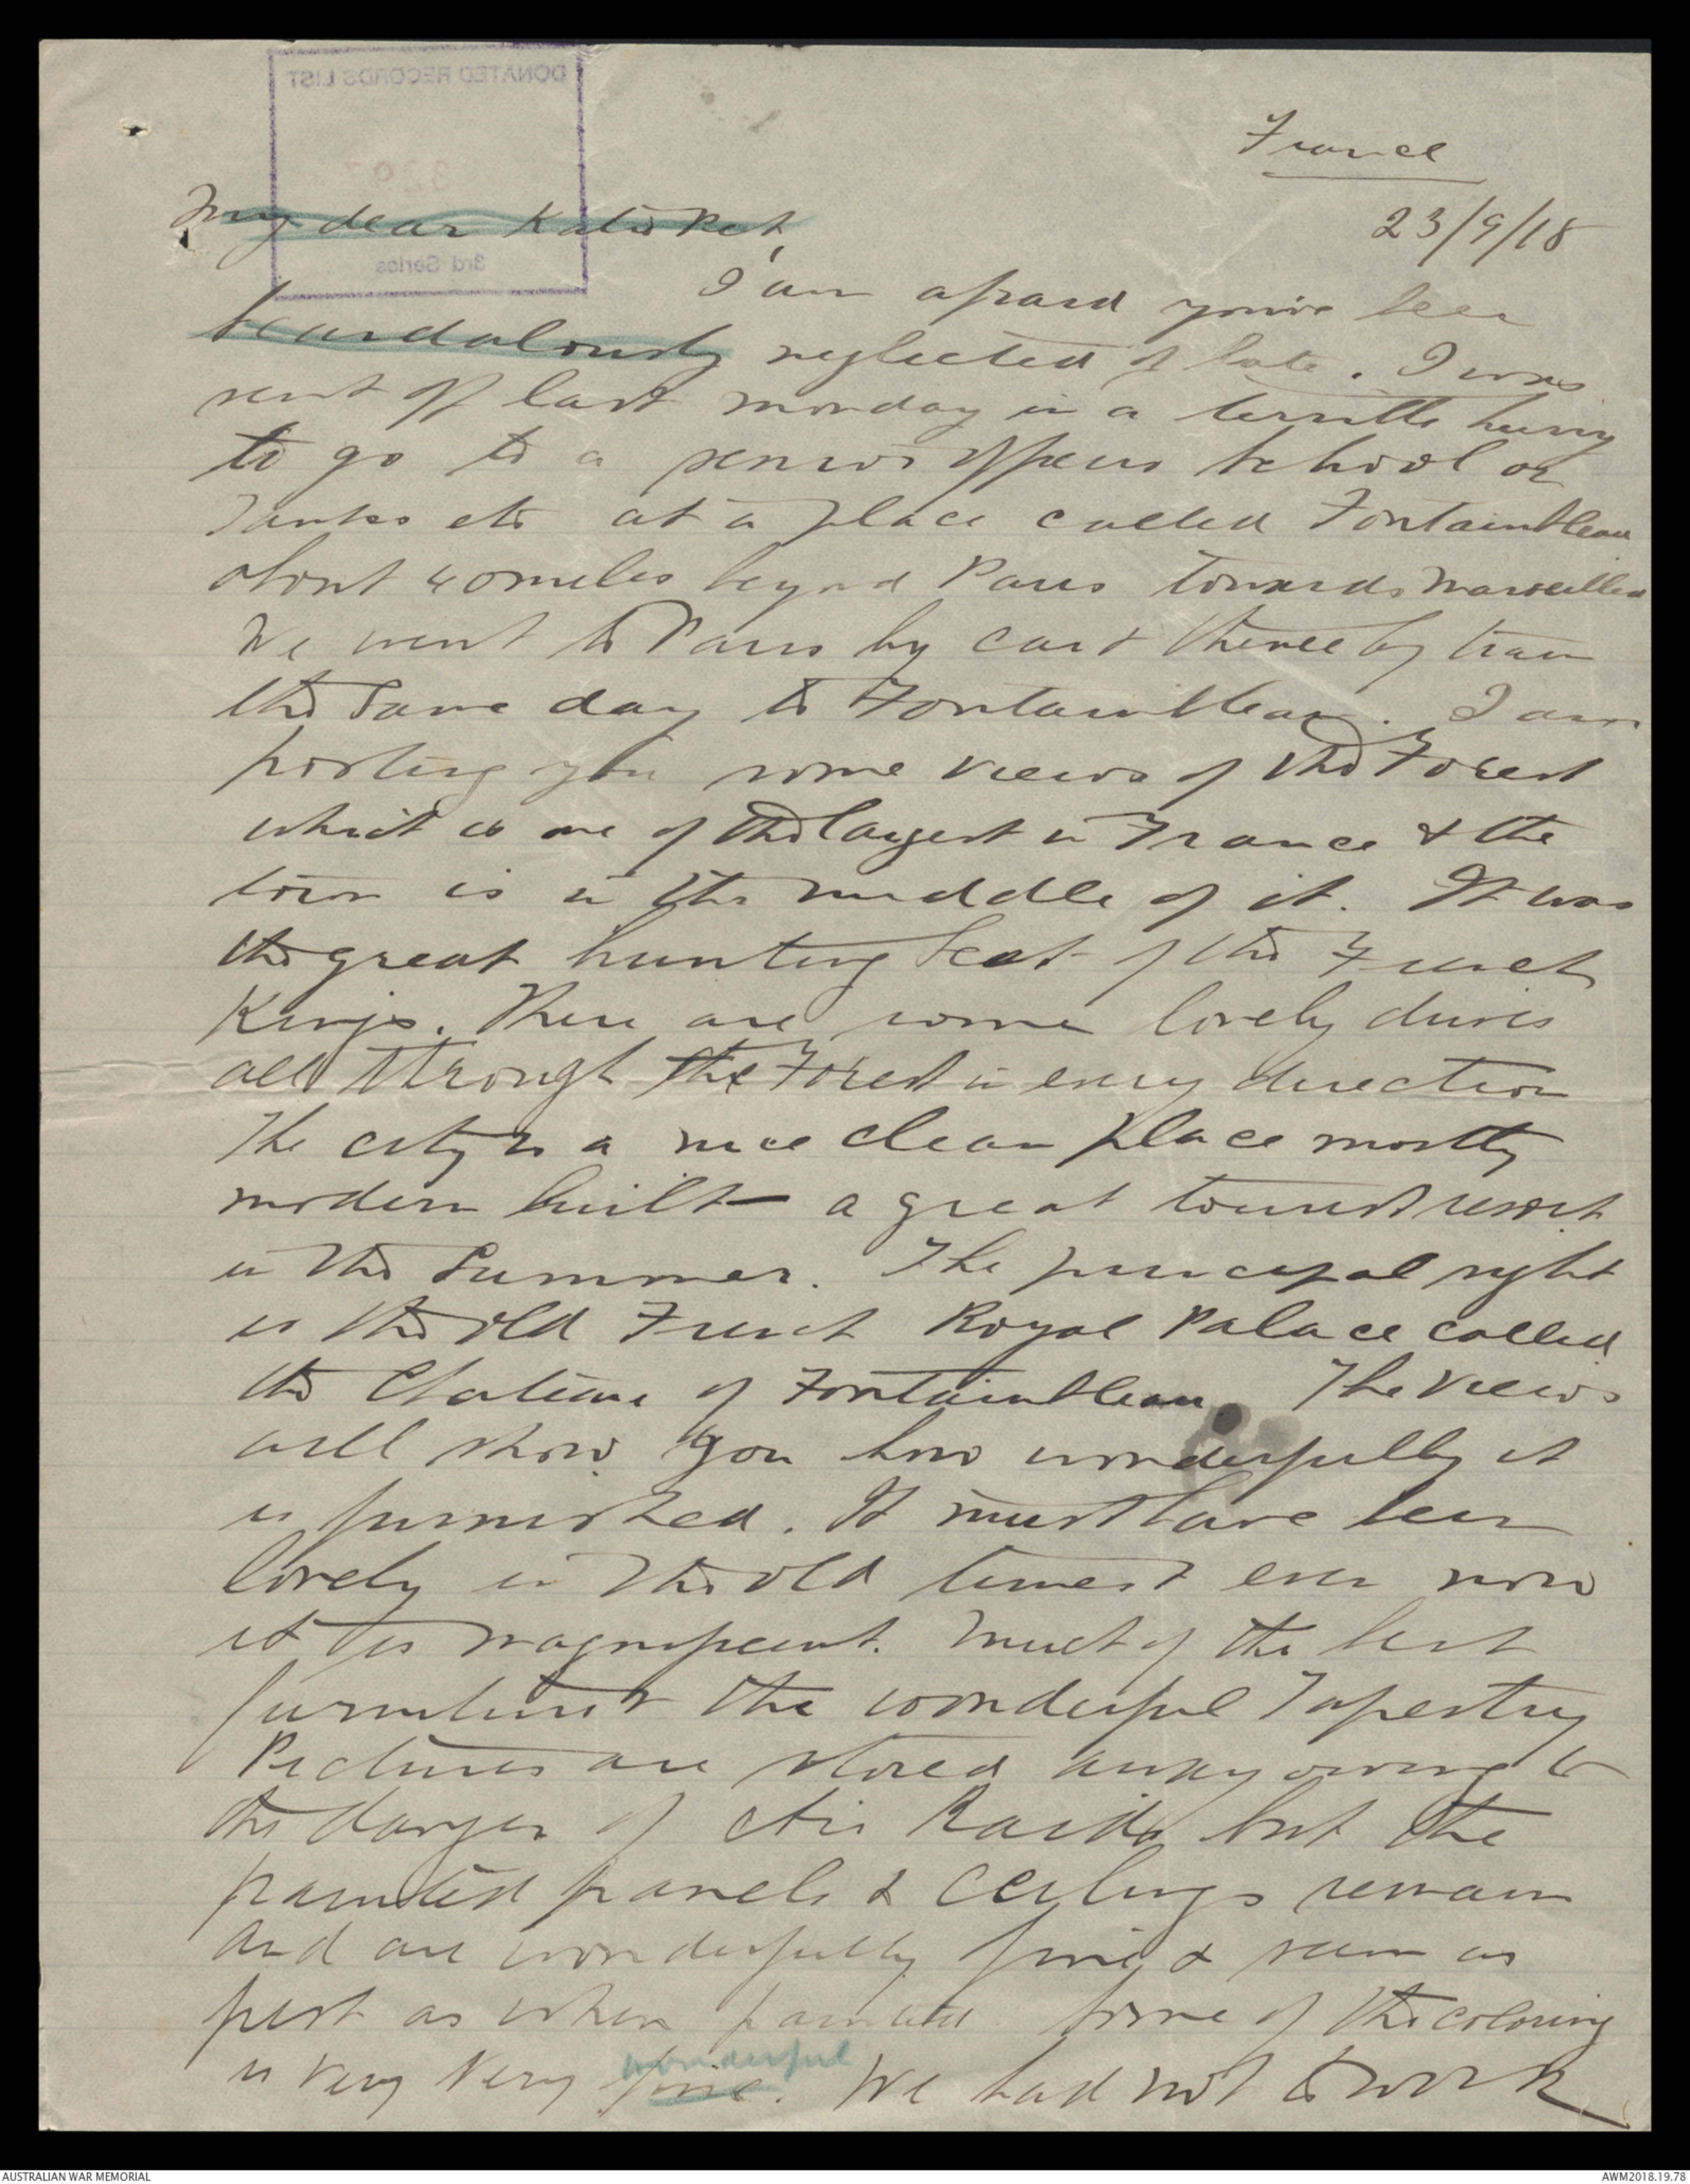 DONATED RECORDS LIST
3207
3rd Series
France
23/9/18
My dear Katie Pet,
I am afraid you've been
scandalously neglected of late. I was
sent off last Monday in a terrible hurry
to go to a senior officers school on
Tanks etc at a place called Fontainbleau
about 40 miles beyond Paris towards Marseilles
We went to Paris by car & thence by train
the same day to Fontainbleau. I am
posting you some views of the Forest
which is one of the largest in France & the
town is in the middle of it. It was
the great hunting seat of the French
Kings. There are some lovely drives
all through the Forest in every direction
The city is a nice clean place mostly
modern built - a great tourist resort
in the Summer. The principal sight
is the old French Royal Palace called
the Chateau of Fontainbleau. The views
will show you how wonderfully it
is furnished. It must have been
lovely in the old times & even now
it is magnificent. Much of the best
furniture & the wonderful Tapestry
Pictures are stored away owing to
the danger of Air Raids but the
painted panels & ceilings remain
and are wonderfully fine & seem as
fresh as when painted. Some of the coloring
is very very fine. wonderful We had not to work
AUSTRALIAN WAR MEMORIAL
AWM2018.19.78